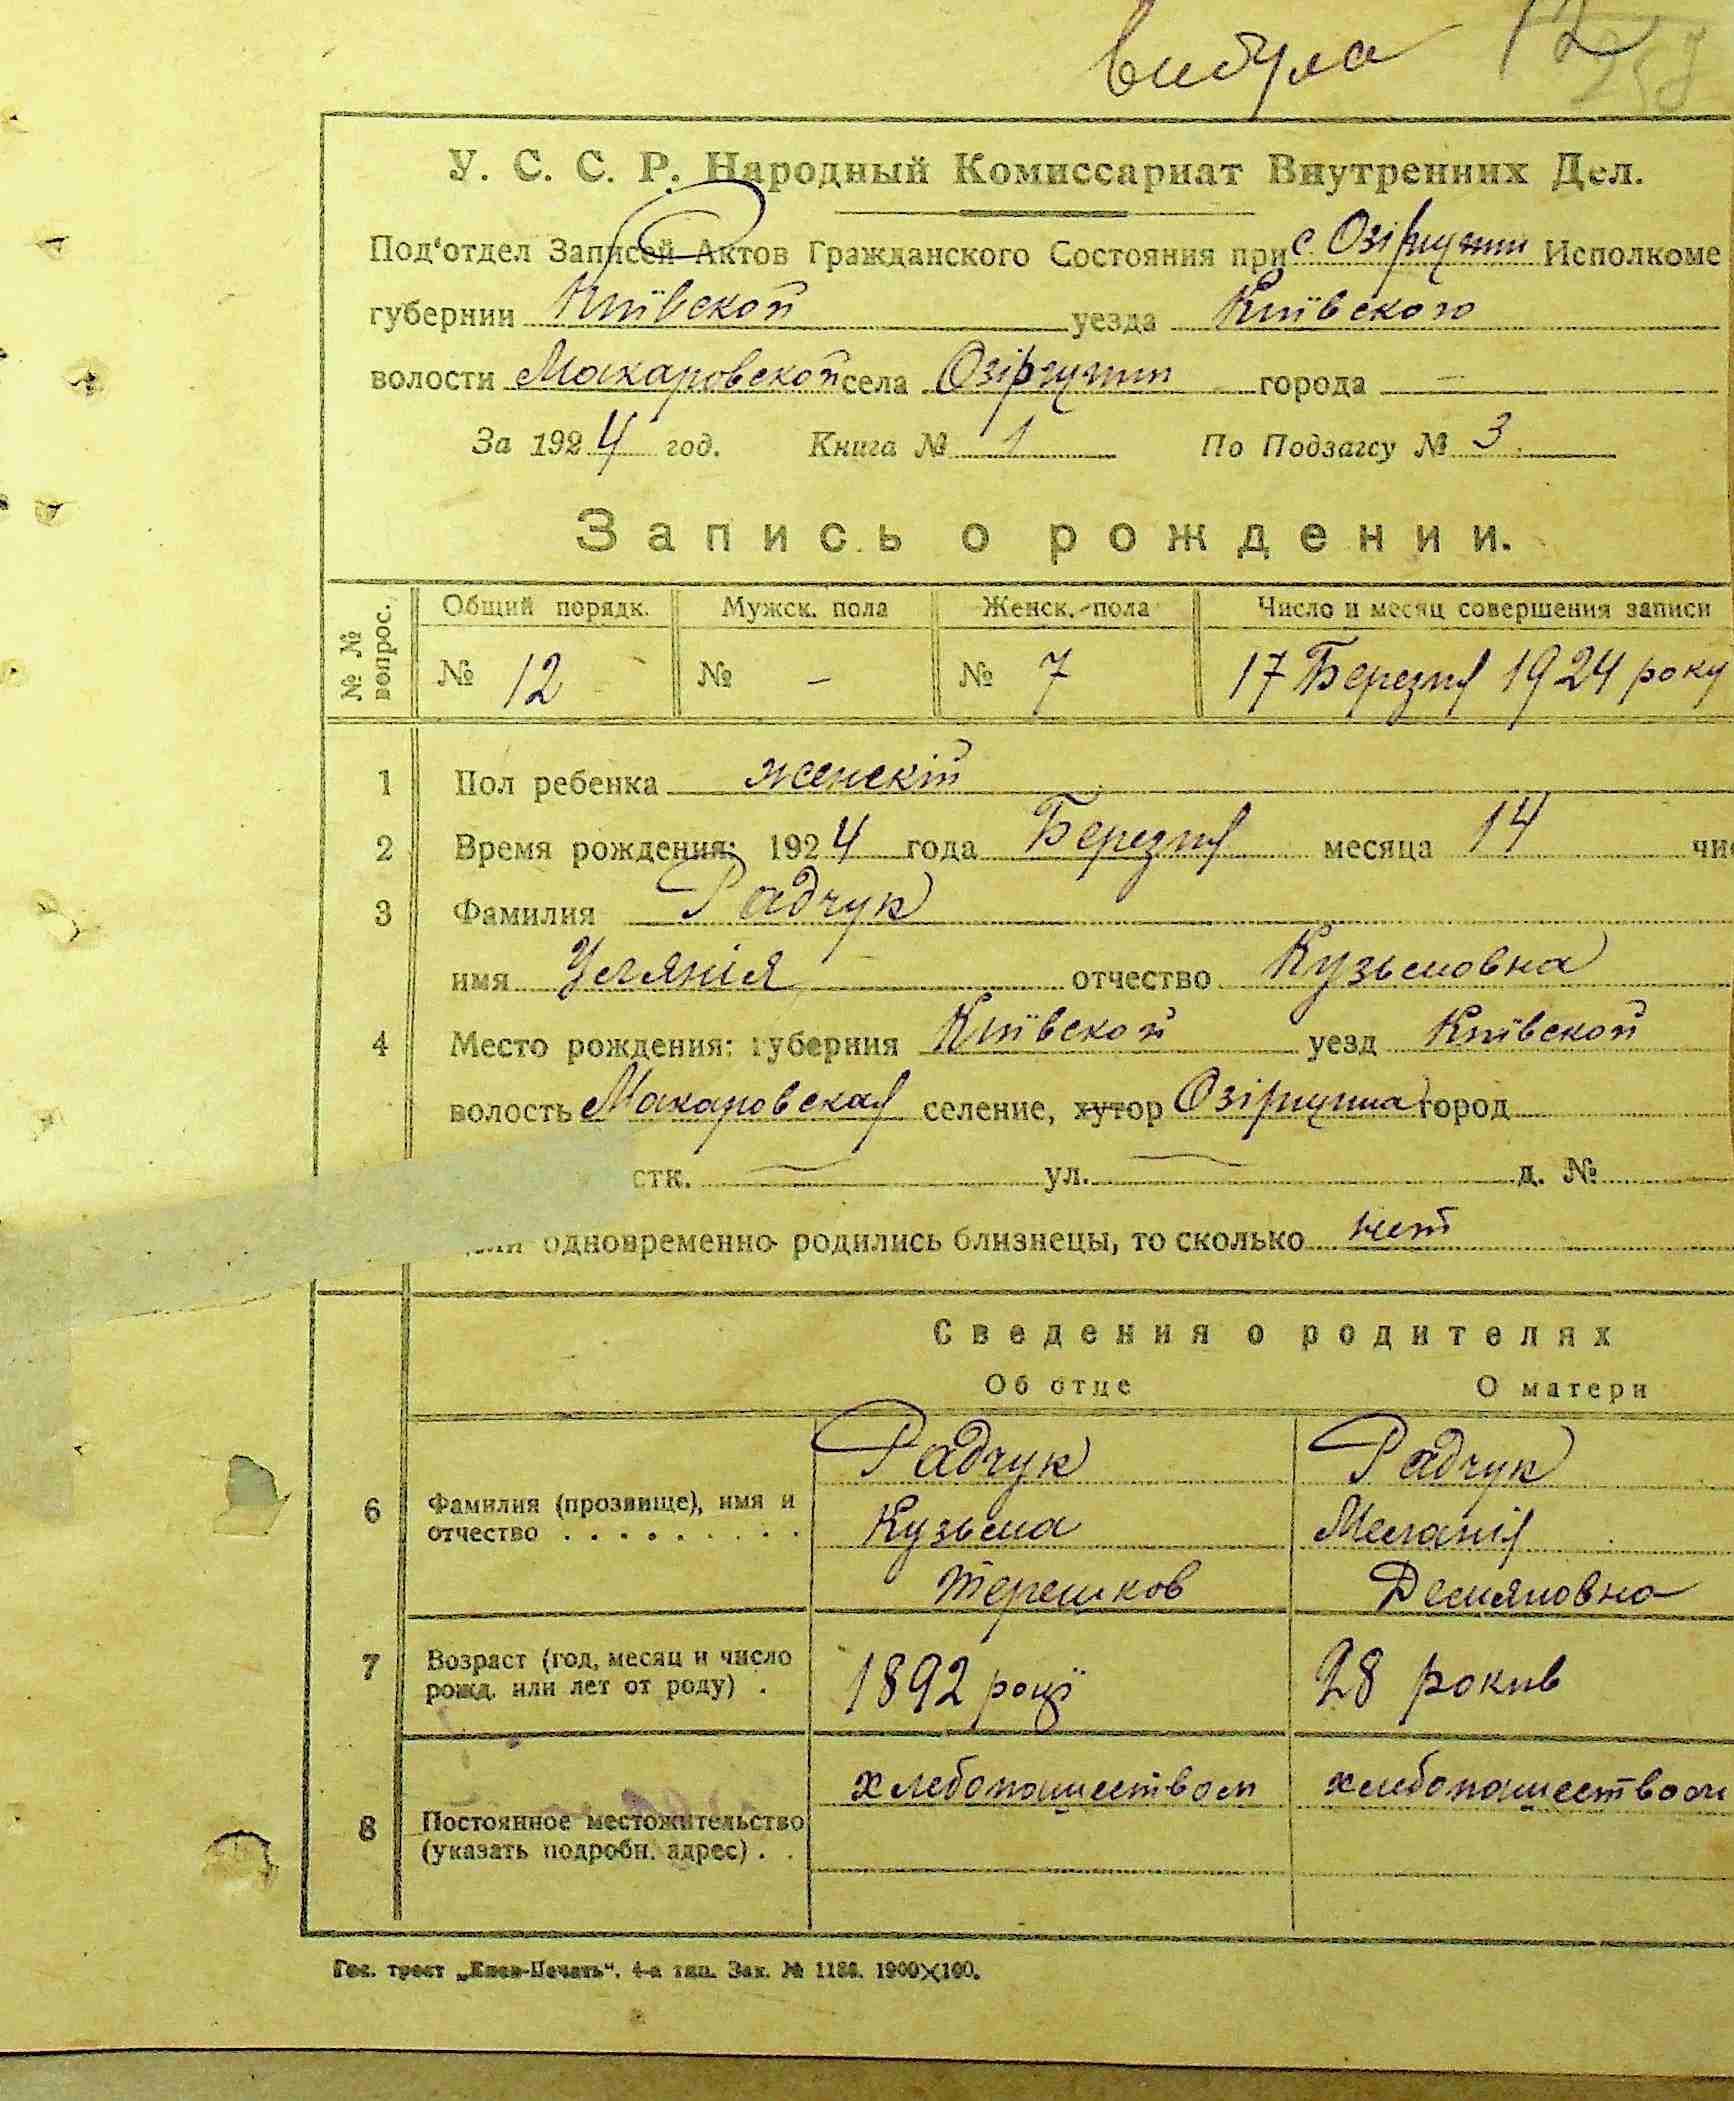 вибула 12
У. С. С. Р. Народный Комиссариат Внутренних Дел.
Под'отдел Записей Актов Гражданского Состояния при с. Озірщини Исполкоме
губернии Київской уезда Київского
волости Макаровской села Озірщини города —
За 1924 год. Книга № 1 По Подзагсу № 3
Запись о рождении.
№ № вопрос. Общий порядк. Мужск. пола Женск. пола Число и месяц совершения записи
№ 12 № - № 7 17 Березня 1924 року
1 Пол ребенка женскій
2 Время рождения: 1924 года Березня месяца 14
3 Фамилия Радчук
имя Улянія отчество Кузьмовна
4 Место рождения: губерния Київской уезд Київской
волость Макаровская селение, хутор Озірщина город
стк. — ул. — д. №
одновременно родились близнецы, то сколько нет
Сведения о родителях
Об отце О матери
Радчук Радчук
6 Фамилия (прозвище), имя и отчество . . . . . . . . . Кузьма Меланія
Терешков Демяновна
7 Возраст (год, месяц и число рожд. или лет от роду) . 1892 році 28 рокив
хлебопашеством хлебопашеством
8 Постоянное местожительство (указать подробн. адрес) . .
Гос. трест „Киев-Печать“. 4-а тип. Зак. № 1186. 1900×100.